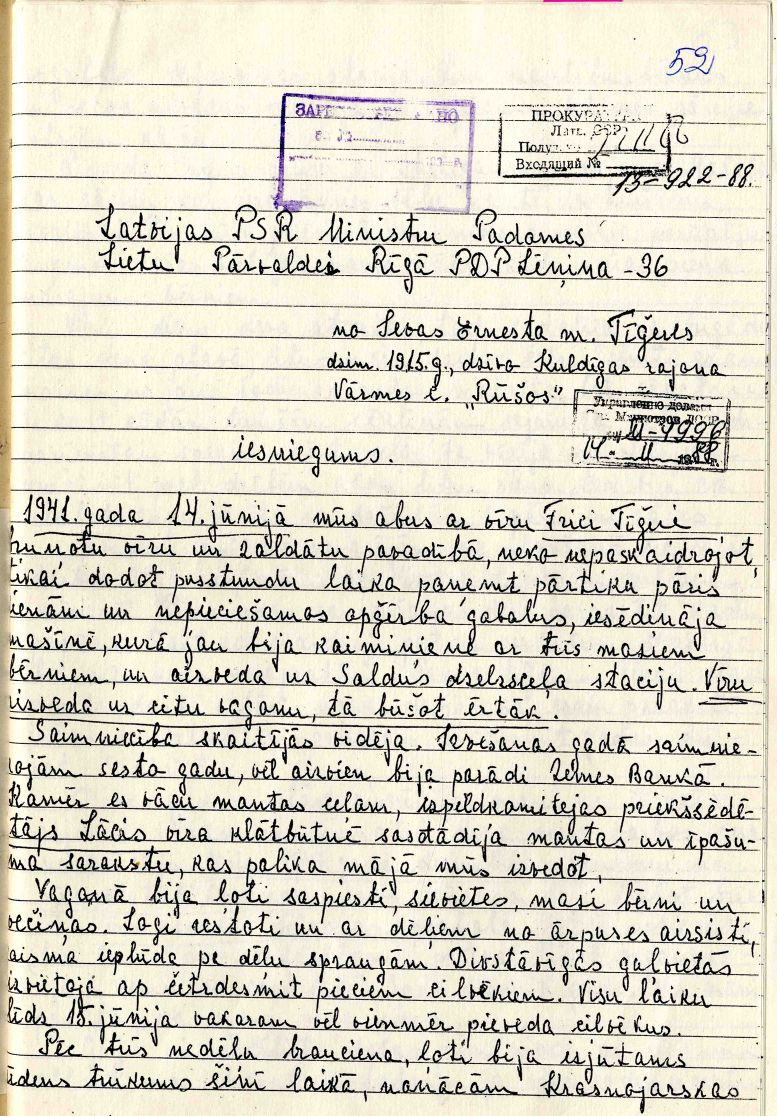 52
ПРОКУРАТУРА
Латв. ССР
Входящий №
13-922-88.
Latvijas PSR Ministru Padomes
Lietu Pārvaldei Rīgā PDP Ļeņina -36
no Ievas Ernesta m. Tīģeres
dzim. 1915.g., dzīvo Kuldīgas rajona
Vārmes c. "Rūšos"
Управление делами
88
iesniegums.
1941. gada 14. jūnijā mūs abus ar vīru Frici Tīģeri
bruņotu vīru un zaldātu pavadībā, neko nepaskaidrojot,
tikai dodot pusstundu laika paņemt pārtiku pāris
dienām un nepieciešamos apģērba gabalus, iesēdināja
mašīnē, kurā jau bija kaimiņiene ar trīs maziem
bērniem, un aizveda uz Saldus dzelzsceļa staciju. Vīru
aizveda uz citu vagonu, tā būšot ērtāk.
Saimniecība skaitījās vidēja. Izvešanas gadā saimnie-
kojām sesto gadu, vēl aizvien bija parādi Zemes Bankā.
Kamēr es vācu mantas ceļam, izpildkomitejas priekšsēdē-
tājs Lācis vīra klātbūtnē sastādīja mantas un īpašu-
ma sarakstu, kas palika mājā mūs izvedot.
Vagonā bija ļoti saspiesti, sievietes, mazi bērni un
večiņas. Logi restoti un ar dēļiem no ārpuses aizsisti,
gaisma ieplūda pa dēļu spraugām. Divstāvīgās guļvietās
izvietoja ap četrdesmit pieciem cilvēkiem. Visu laiku
līdz 15. jūnija vakaram vēl vienmēr pieveda cilvēkus.
Pēc trīs nedēļu brauciena, ļoti bija izjūtams
ūdens trūkums šinī laikā, nonācām Krasnojarskas